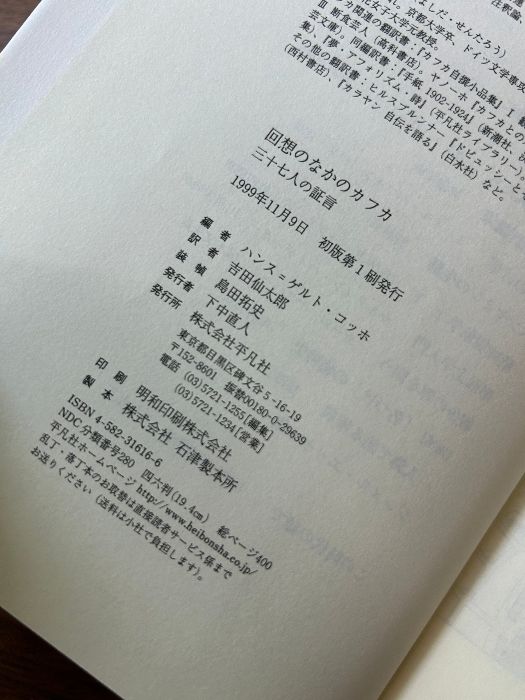 注釈論
よしだ・せんたろう)
れ。京都大学卒、ドイツ文学専攻
花女子大学元教授。
カ関連の翻訳書：『カフカ自撰小品集』I
II 断食芸人(高科書店)。ヤノーホ『カフカとの
集』、『夢・アフォリズム・詩』(平凡社ライブラリー)。
芸文庫)。同編訳書：『手紙 1902-1924』(新潮社、
その他の翻訳書：ヒルスブルンナー『ドビュッシーとそ
(西村書店)、『カラヤン 自伝を語る』(白水社)など。
回想のなかのカフカ
三十七人の証言
1999年11月9日 初版第1刷発行
編者 ハンス＝ゲルト・コッホ
訳者 吉田仙太郎
装幀 島田拓史
発行者 下中直人
発行所 株式会社平凡社
東京都目黒区碑文谷5-16-19
〒152-8601 振替00180-0-29639
電話 (03)5721-1255[編集]
(03)5721-1234[営業]
印刷 明和印刷株式会社
製本 株式会社 石津製本所
ISBN 4-582-31616-6
NDC分類番号280 四六判(19.4cm) 総ページ400
平凡社ホームページ http://www.heibonsha.co.jp/
乱丁・落丁本のお取替は直接読者サービス係まで
お送りください(送料は小社で負担します)。